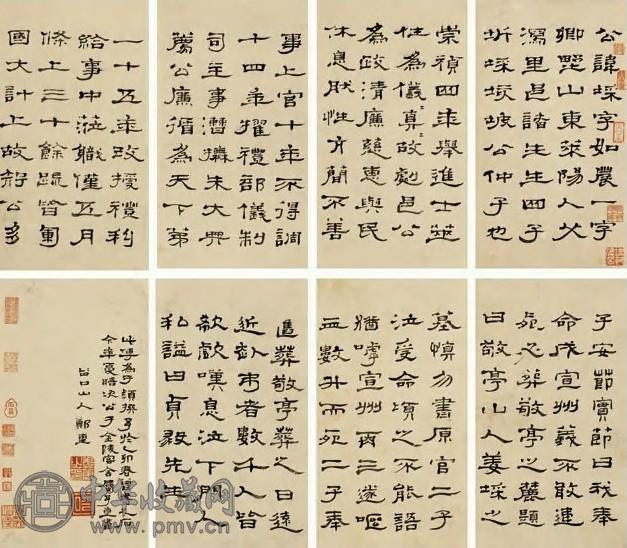 公諱埰字如農一字
卿墅山東萊陽人父
瀉里邑諸生生四子
圻埰垓坡公仲子也
崇禎四年舉進士筮
仕為儀真故劇邑公
為政清廉慈惠與民
休息肰性方簡不善
事上官十年不得調
十四年擢禮部儀制
司主事 朱大典
薦公廉循為天下第
一十五年改授禮科
給事中莅職僅五月
條上三十餘疏皆軍
國大計上故知公多
子安節實節曰我奉
命戍宣州義不敢違
死必葬敬亭之麓題
曰敬亭山人姜埰之
墓慎勿書原官二子
泣受命頃之不能語
猶呼宣州两三遂嘔
血數升而死二子奉
匶葬敬亭葬之日遠
近赴弔者數千人皆
歔欷嘆息泣下門人
私諡曰貞毅先生
谷口山人鄭簠
中华收藏网
www.pmv.cn